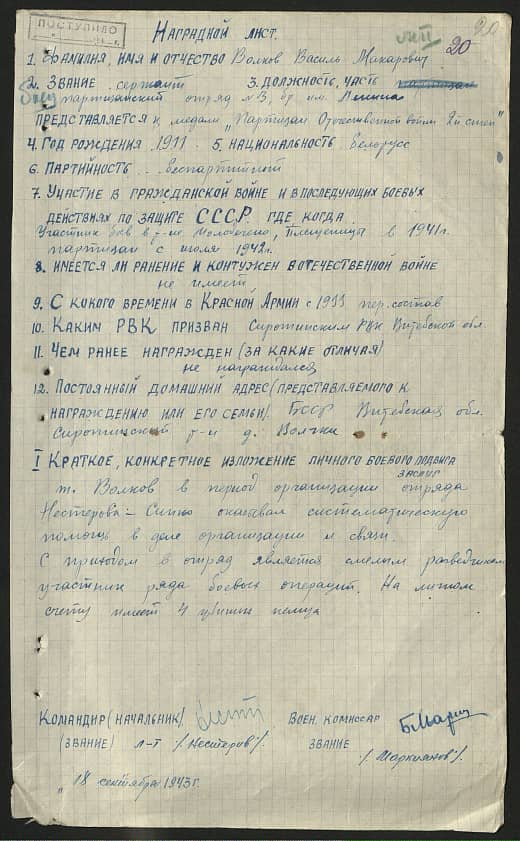 ПОСТУПИЛО
20
НАГРАДНОЙ ЛИСТ.
1. ФАМИЛИЯ, ИМЯ И ОТЧЕСТВО Волков Василь Макарович
2. ЗВАНИЕ сержант 3. ДОЛЖНОСТЬ, ЧАСТЬ
партизанский отряд №3, бр. им. Ленина
ПРЕДСТАВЛЯЕТСЯ к медали „Партизан Отечественной войны 2й степ"
4. ГОД РОЖДЕНИЯ 1911 5. НАЦИОНАЛЬНОСТЬ белорусс
6. ПАРТИЙНОСТЬ беспартийный
7. УЧАСТИЕ В ГРАЖДАНСКОЙ ВОЙНЕ И В ПОСЛЕДУЮЩИХ БОЕВЫХ
ДЕЙСТВИЯХ ПО ЗАЩИТЕ СССР. ГДЕ, КОГДА
Участник боев в р-не Молодечно, Плещеницы в 1941г.
партизан с июля 1942г.
8. ИМЕЕТСЯ ЛИ РАНЕНИЕ И КОНТУЖЕН В ОТЕЧЕСТВЕННОЙ ВОЙНЕ
не имеет
9. С КОКОГО ВРЕМЕНИ В КРАСНОЙ АРМИИ с 1933 пер. состав
10. КАКИМ РВК ПРИЗВАН Сиротинским РВК Витебской обл.
11. ЧЕМ РАНЕЕ НАГРАЖДЕН (ЗА КАКИЕ ОТЛИЧАЯ)
не награждался
12. ПОСТОЯННЫЙ ДОМАШНИЙ АДРЕС (ПРЕДСТАВЛЯЕМОГО К
НАГРАЖДЕНИЮ ИЛИ ЕГО СЕМЬИ) БССР Витебская обл.
Сиротинский р-н д. Волчки
I КРАТКОЕ, КОНКРЕТНОЕ ИЗЛОЖЕНИЕ ЛИЧНОГО БОЕВОГО ПОДВИГА
ЗАСЛУГ
т. Волков в период организации отряда
Нестерова – Силю оказывал систематическую
помощь в деле организации и связи.
С приходом в отряд является смелым разведчиком
участник ряда боевых операций. На личном
счету имеет 4 убитых немца
КОМАНДИР (НАЧАЛЬНИК) ВОЕН. КОМИССАР
(ЗВАНИЕ) л-т /Нестеров/. ЗВАНИЕ
/Маркианов/.
„18 сентября 1943г.